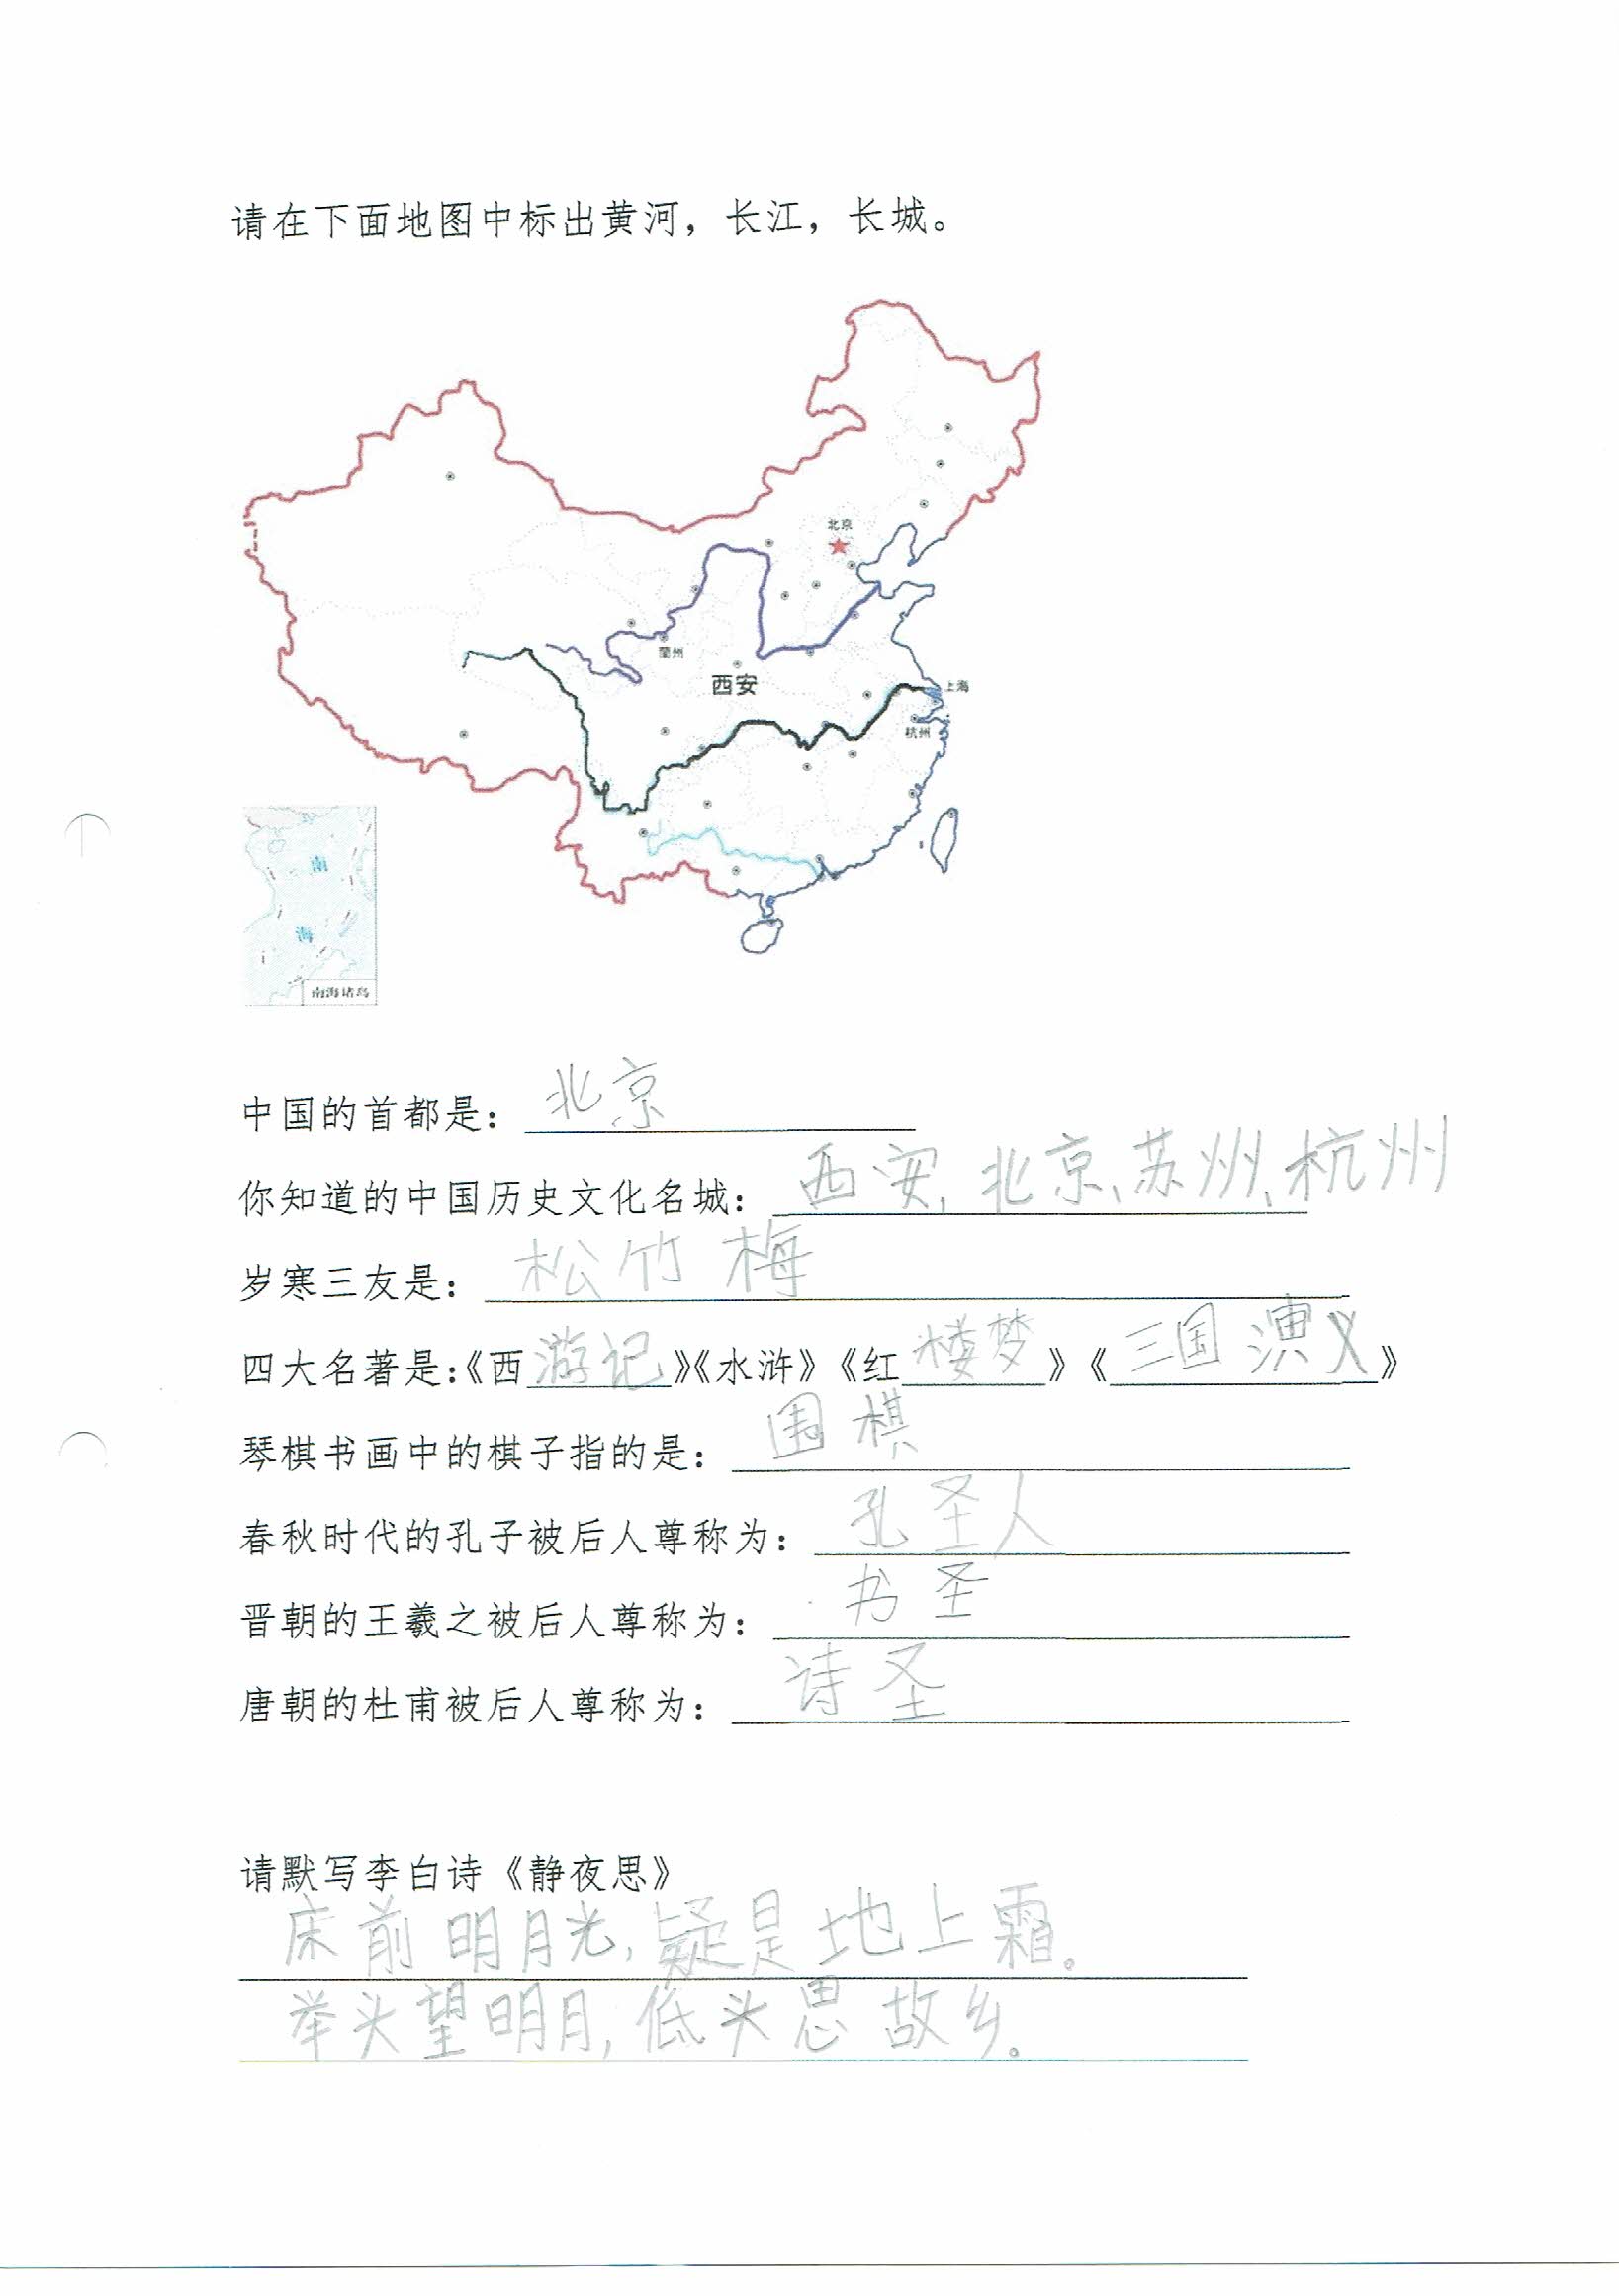 请在下面地图中标出黄河，长江，长城。
北京
蘭州
西安
上海
杭州
南
海
南海诸岛
中国的首都是：北京
你知道的中国历史文化名城：西安、北京、苏州、杭州
岁寒三友是：松竹梅
四大名著是：《西游记》《水浒》《红楼梦》《三国演义》
琴棋书画中的棋子指的是：围棋
春秋时代的孔子被后人尊称为：孔圣人
晋朝的王羲之被后人尊称为：书圣
唐朝的杜甫被后人尊称为：诗圣
请默写李白诗《静夜思》
床前明月光，疑是地上霜。
举头望明月，低头思故乡。